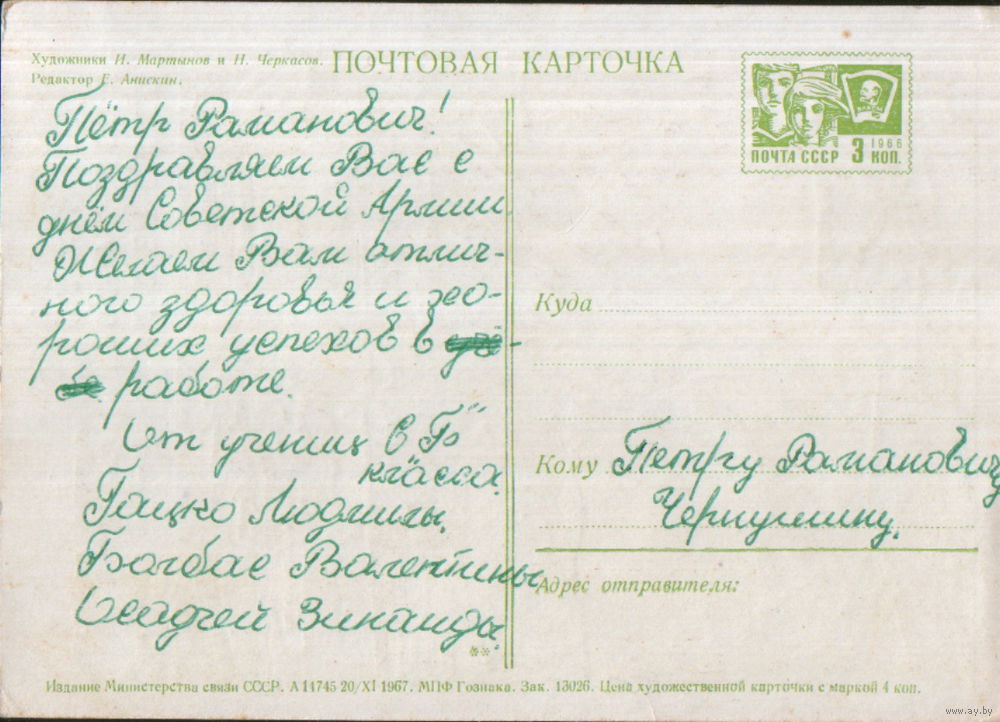 Художники И. Мартынов и Н. Черкасов.
Редактор Е. Анискин.
ПОЧТОВАЯ КАРТОЧКА
ПОЧТА СССР 3 КОП.
1966
Пётр Раманович!
Поздравляем Вас с
днём Советской Армии.
Желаем Вам отлич-
ного здоровья и хо-
роших успехов в
работе.
От учениц 6 "Б"
класса.
Гацко Людмилы,
Балбас Валентины
Осадчей Зинаиды.
Куда
Кому Петру Рамановичу
Адрес отправителя:
Издание Министерства связи СССР. А 11745 20/XI 1967. МПФ Гознака. Зак. 13026. Цена художественной карточки с маркой 4 коп.
www.ay.by